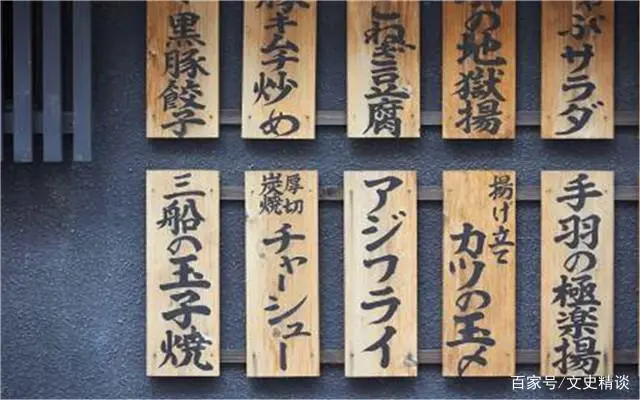 ぶサラダ
の地獄揚
ねぎ豆腐
豚キムチ炒め
黒豚餃子
手羽の極楽揚
揚げ立て
カツの玉〆
アジフライ
厚切
炭焼
チャーシュー
三船の玉子焼
百家号/文史精谈